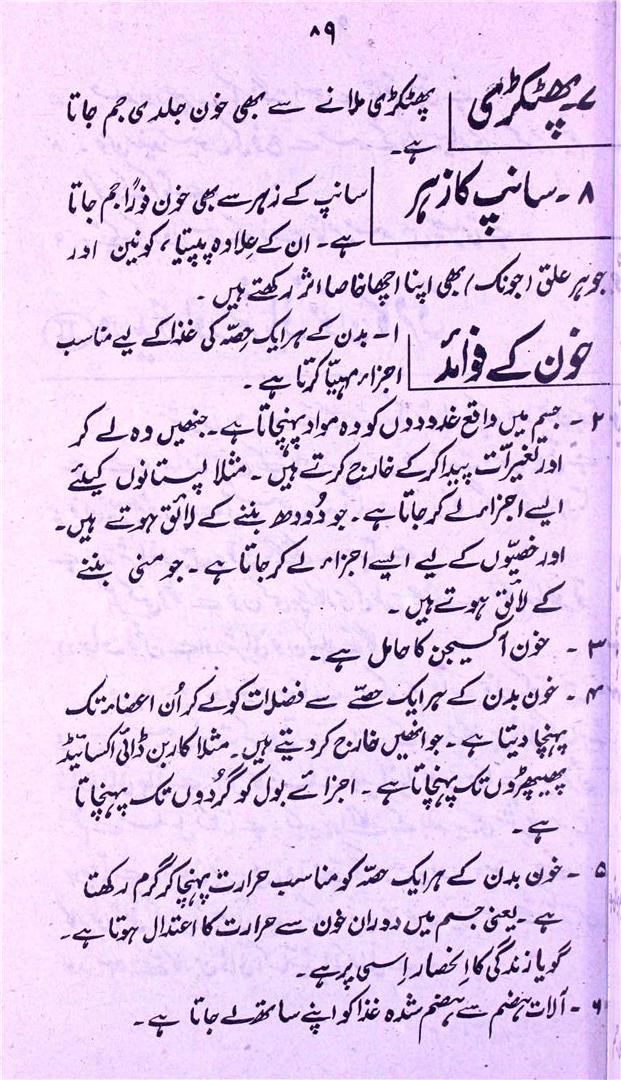 ۸۹
۷۔ پھٹکڑی
پھٹکڑی ملانے سے بھی خون جلدی جم جاتا
ہے۔
۸۔ سانپ کا زہر
سانپ کے زہر سے بھی خون فوراً جم جاتا
ہے۔ ان کے علاوہ پپیتا، کونین اور
جوہر علق (جونک) بھی اپنا اچھا خاصا اثر رکھتے ہیں۔
خون کے فوائد
۱۔ بدن کے ہر ایک حصّہ کی غذا کے لیے مناسب
اجزاء مہیّا کرتا ہے۔
۲۔ جسم میں واقع غدودوں کو وہ مواد پہنچاتا ہے۔ جنھیں وہ لے کر
اور تغیرات پیدا کر کے خارج کرتے ہیں۔ مثلاً پستانوں کیلئے
ایسے اجزاء لے کر جاتا ہے۔ جو دُودھ بننے کے لائق ہوتے ہیں۔
اور خصیّوں کے لیے ایسے اجزاء لے کر جاتا ہے۔ جو منی بننے
کے لائق ہوتے ہیں۔
۳۔ خون آکسیجن کا حامل ہے۔
۴۔ خون بدن کے ہر ایک حصّے سے فضلات کو لے کر اُن اعضاء تک
پہنچا دیتا ہے۔ جو انھیں خارج کر دیتے ہیں۔ مثلاً کاربن ڈائی اکسائیڈ
پھیپھڑوں تک پہنچاتا ہے۔ اجزائے بول کو گُردوں تک پہنچاتا
ہے۔
۵۔ خون بدن کے ہر ایک حصّہ کو مناسب حرارت پہنچا کر گرم رکھتا
ہے۔ یعنی جسم میں دوران خون سے حرارت کا اعتدال ہوتا ہے۔
گویا زندگی کا اِنحصار اِسی پر ہے۔
۶۔ آلات ہضم سے ہضم شدہ غذا کو اپنے ساتھ لے جاتا ہے۔